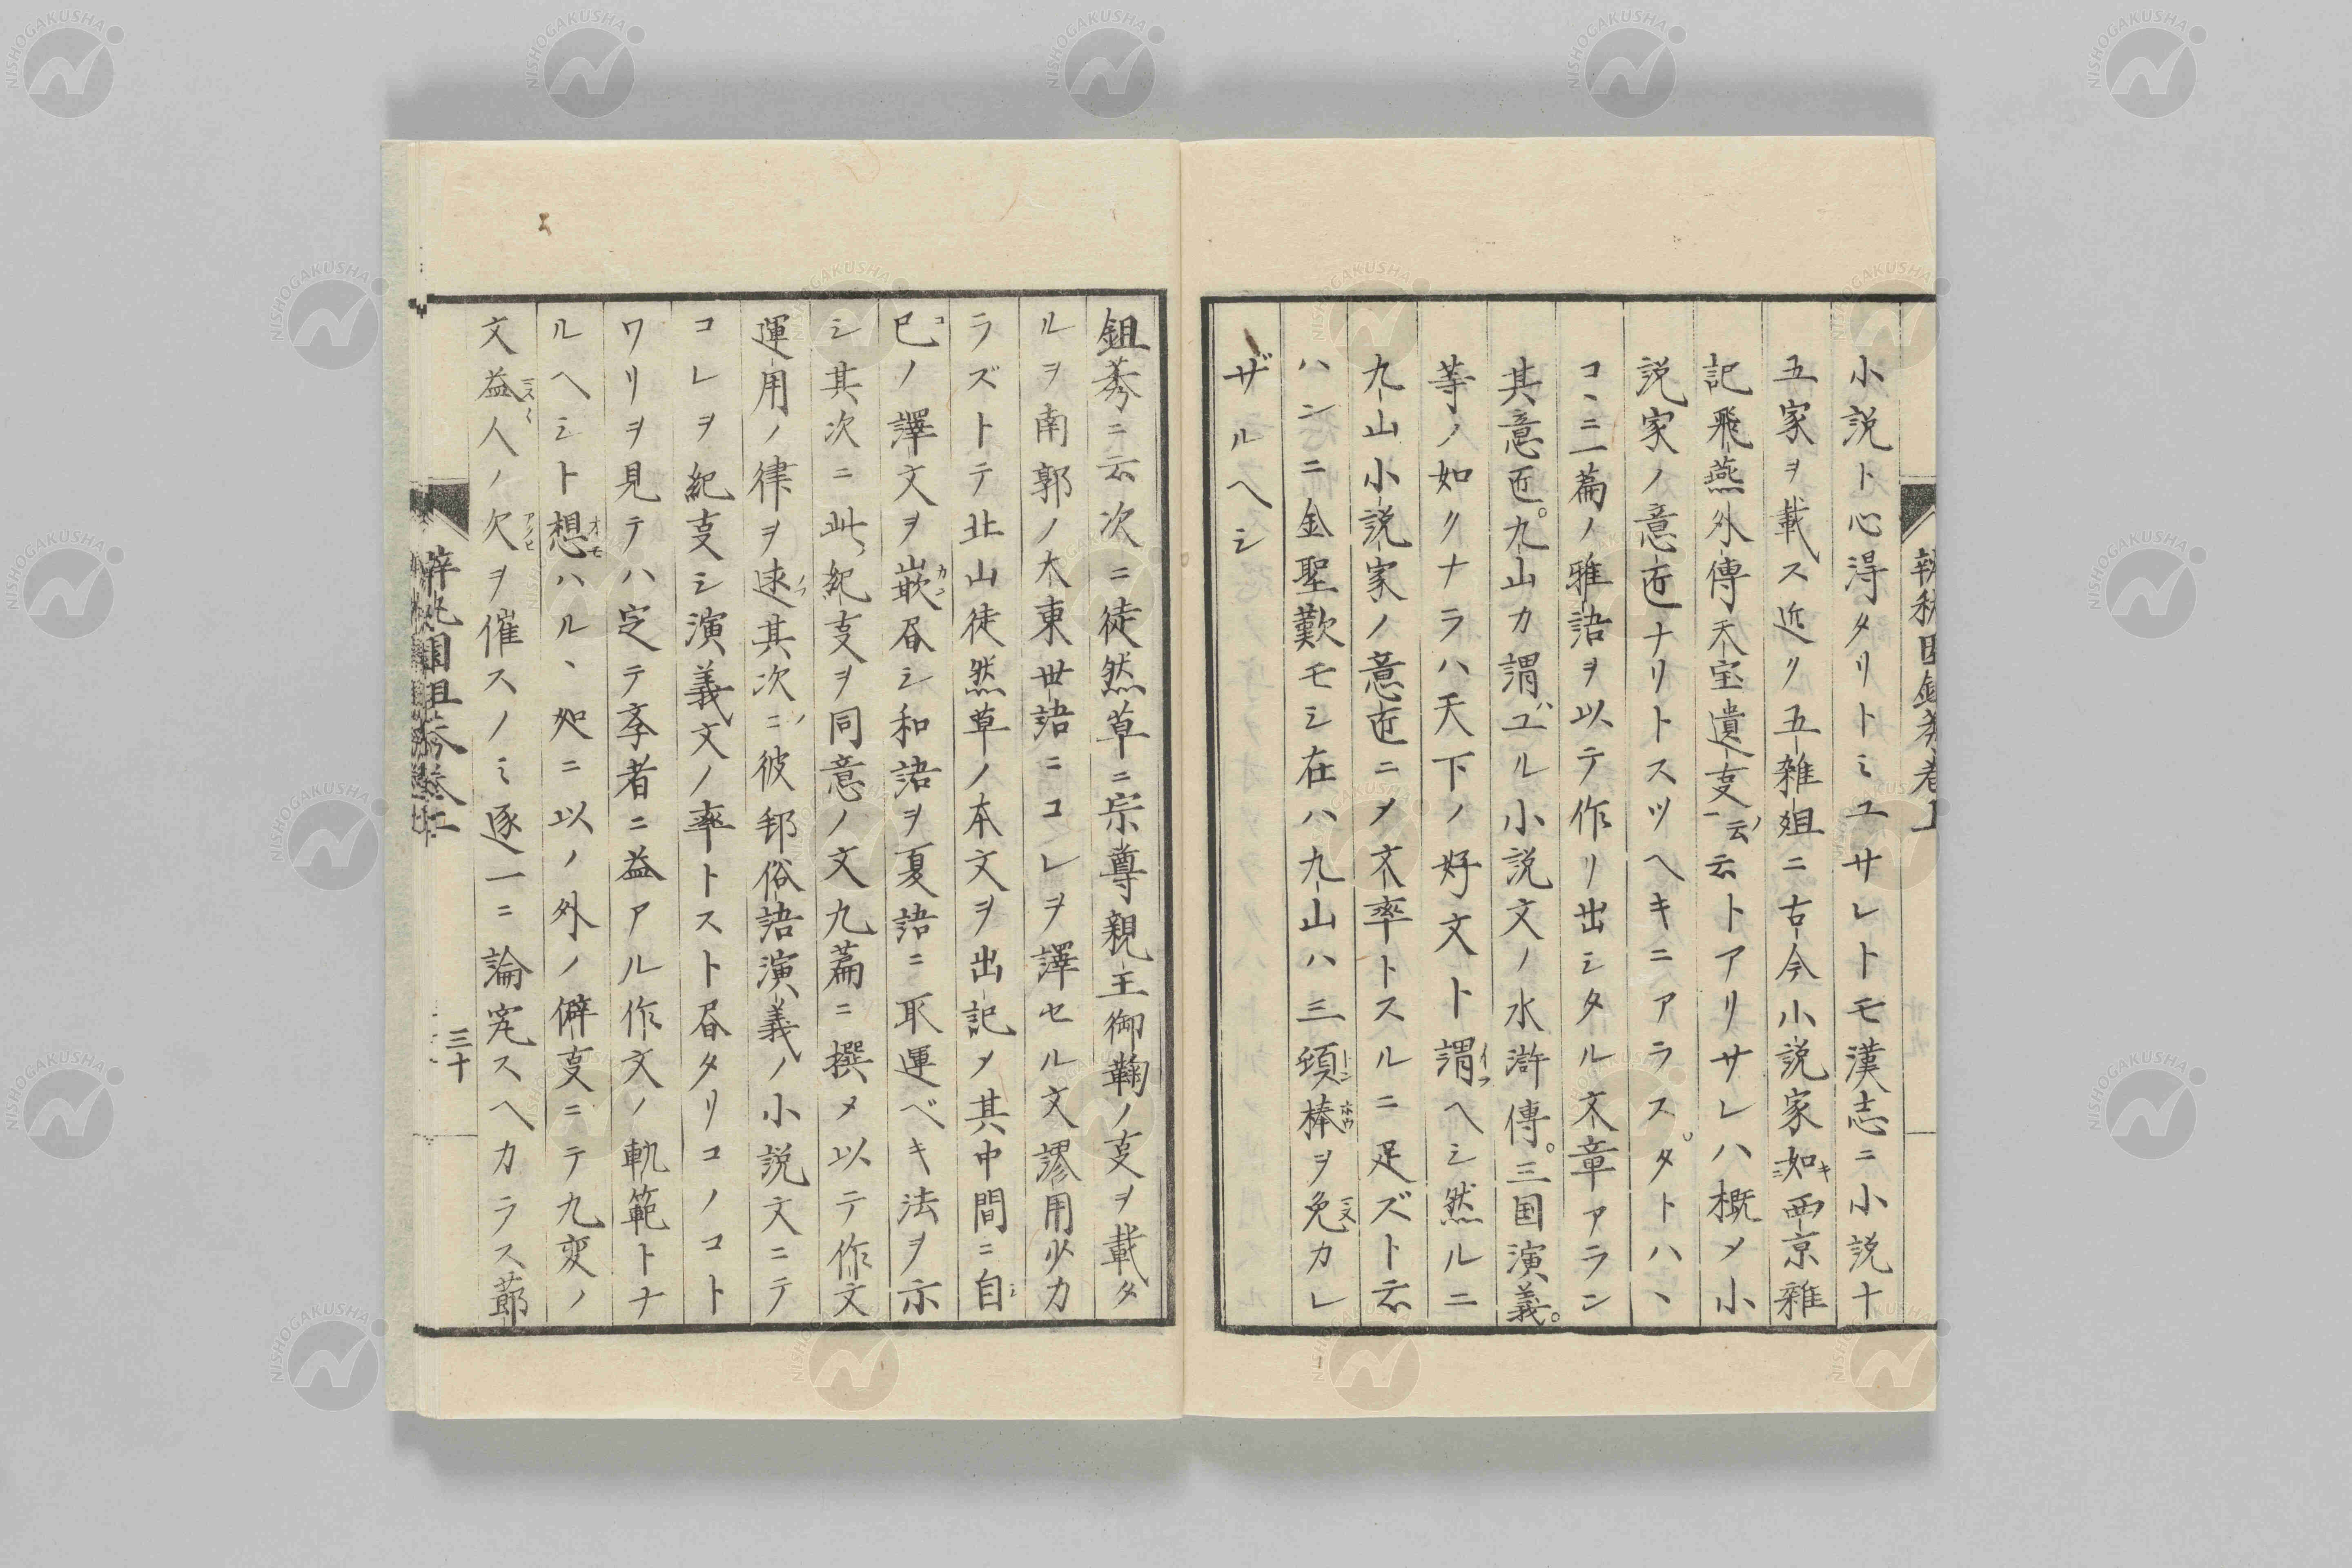 小説ト心得タリトミユサレトモ漢志ニ小説十
五家ヲ載ス近クリ五雑姐ニ古今小説家如キ西京雑
記飛燕外傳天宝遺事云云トアリサレハ概メ小
説家ノ意匠ナリトスツヘキニアラス。タトハヽ
コヽニ一篇ノ雅語ヲ以テ作リ出シタル文章アラン
其意匠。九山カ謂ユル小説文ノ水滸傳。三国演義。
等ノ如クナラハ天下ノ好文ト謂ヘシ然ルニ
九山小説家ノ意匠ニメ文率トスルニ足ズト云
ハンニ金聖歎モシ在ハ九山ハ三頓棒ヲ免カレ
ザルヘシ
鉏莠ニ云次ニ徒然草ニ宗尊親王御鞠ノ事ヲ載タ
ルヲ南郭ノ大東世語ニコレヲ譯セル文謬用少カ
ラズトテ北山徒然草ノ本文ヲ出記メ其中間ニ自
己ノ譯文ヲ嵌㞐シ和語ヲ夏語ニ取運ベキ法ヲ示
シ其次ニ此紀事ヲ同意ノ文九篇ニ撰メ以テ作文
運用ノ律ヲ逑其次ニ彼邦俗語演義ノ小説文ニテ
コレヲ紀事シ演義文ノ率トスト㞐タリコノコト
ワリヲ見テハ定テ斈者ニ益アル作文ノ軌範トナ
ルヘシト想ハルヽ処ニ以ノ外ノ僻事ニテ九変ノ
文益人ノ欠ヲ催スノミ逐一ニ論究スヘカラス蔀
三十